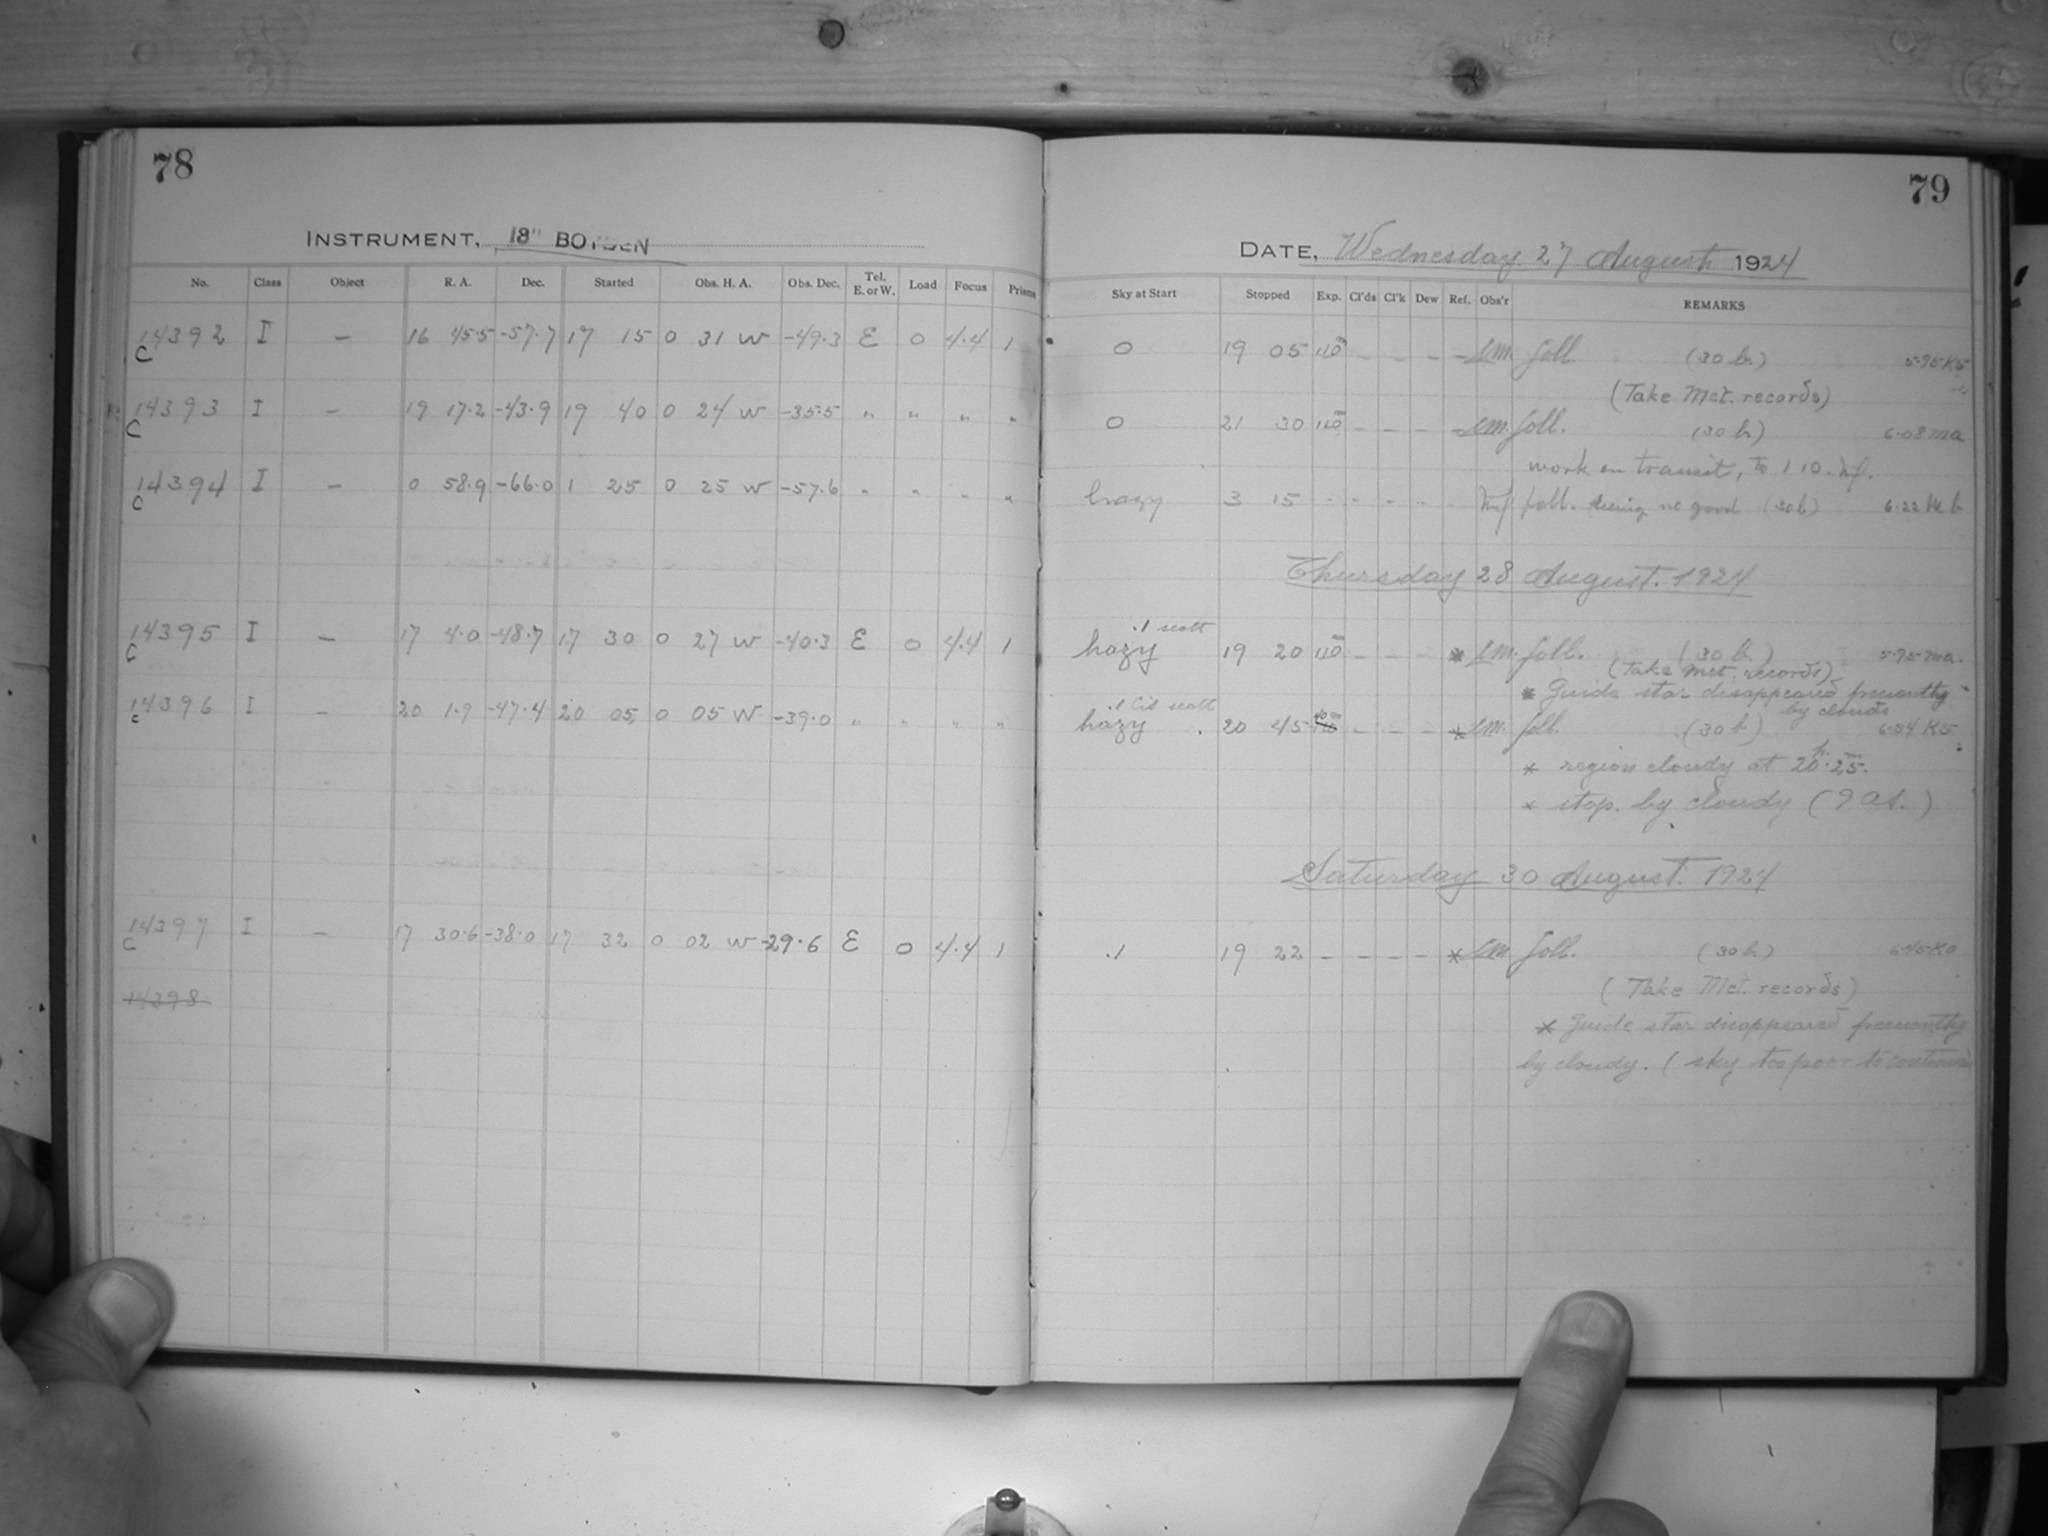 78
INSTRUMENT, 18" BOYDEN
No. Class Object R. A. Dec. Started Obs. H. A. Obs. Dec. Tel. E. or W. Load Focus Prisms
14392 I — 16 45.5 -57.7 17 15 0 31 W -49.3 E 0 4.4 1
C
14393 I — 19 17.2 -43.9 19 40 0 24 W -35.5 " " " "
C
14394 I — 0 58.9 -66.0 1 25 0 25 W -57.6 " " " "
C
14395 I — 17 4.0 -48.7 17 30 0 27 W -40.3 E 0 4.4 1
C
14396 I — 20 1.9 -47.4 20 05 0 05 W -39.0 " " " "
C
14397 I — 17 30.6 -38.0 17 32 0 02 W -29.6 E 0 4.4 1
C
14398
79
DATE, Wednesday 27 August 1924
Sky at Start Stopped Exp. Cl'ds Cl'k Dew Ref. Obs'r REMARKS
0 19 05 110m — — — — foll. (30 b.) 5.95 K5
(Take Met. records)
0 21 30 110m — — — — foll. (30 b.) 6.08 ma
work on transit, to 1 10.
hazy 3 15 - - - - - foll. seeing no good (30 b) 6.22 Mb
Thursday 28 August. 1924
.1 scatt
hazy 19 20 110m — — — * foll. (30 b.) 5.95 ma.
(Take Met. records)
* Guide star disappeared frecuently
by clouds
.1 scatt
hazy 20 45 40m — — — * foll. (30 b.) 6.54 K5
* region cloudy at 20h.25m.
* stop. by cloudy
Saturday 30 August. 1924
.1 19 22 — — — — * foll. (30 b.) K0
(Take Met. records)
* Guide star disappeared frecuently
by cloudy. (sky too poor to continue)